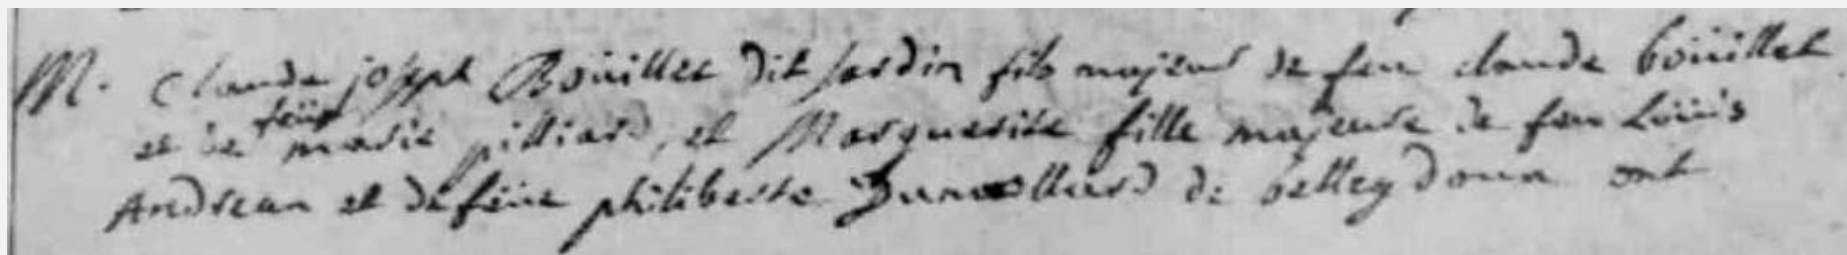 M. Claude joseph Boüillet dit Jardin fils majeur de feu claude boüillet
et de feüe marie pilliard, et Marguerite fille majeure de feu Loüis
Andrean et de feüe philiberte de belleydoux ont